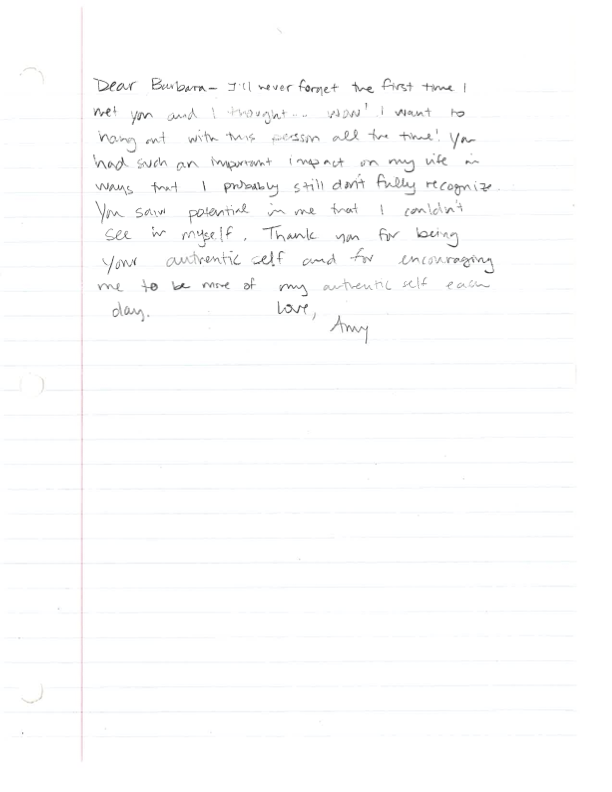 Dear Barbara - I'll never forget the first time I
met you and I thought... wow! I want to
hang out with this person all the time! You
had such an important impact on my life in
ways that I probably still don't fully recognize.
You saw potential in me that I couldn't
see in myself. Thank you for being
your authentic self and for encouraging
me to be more of my authentic self each
day. Love,
Amy